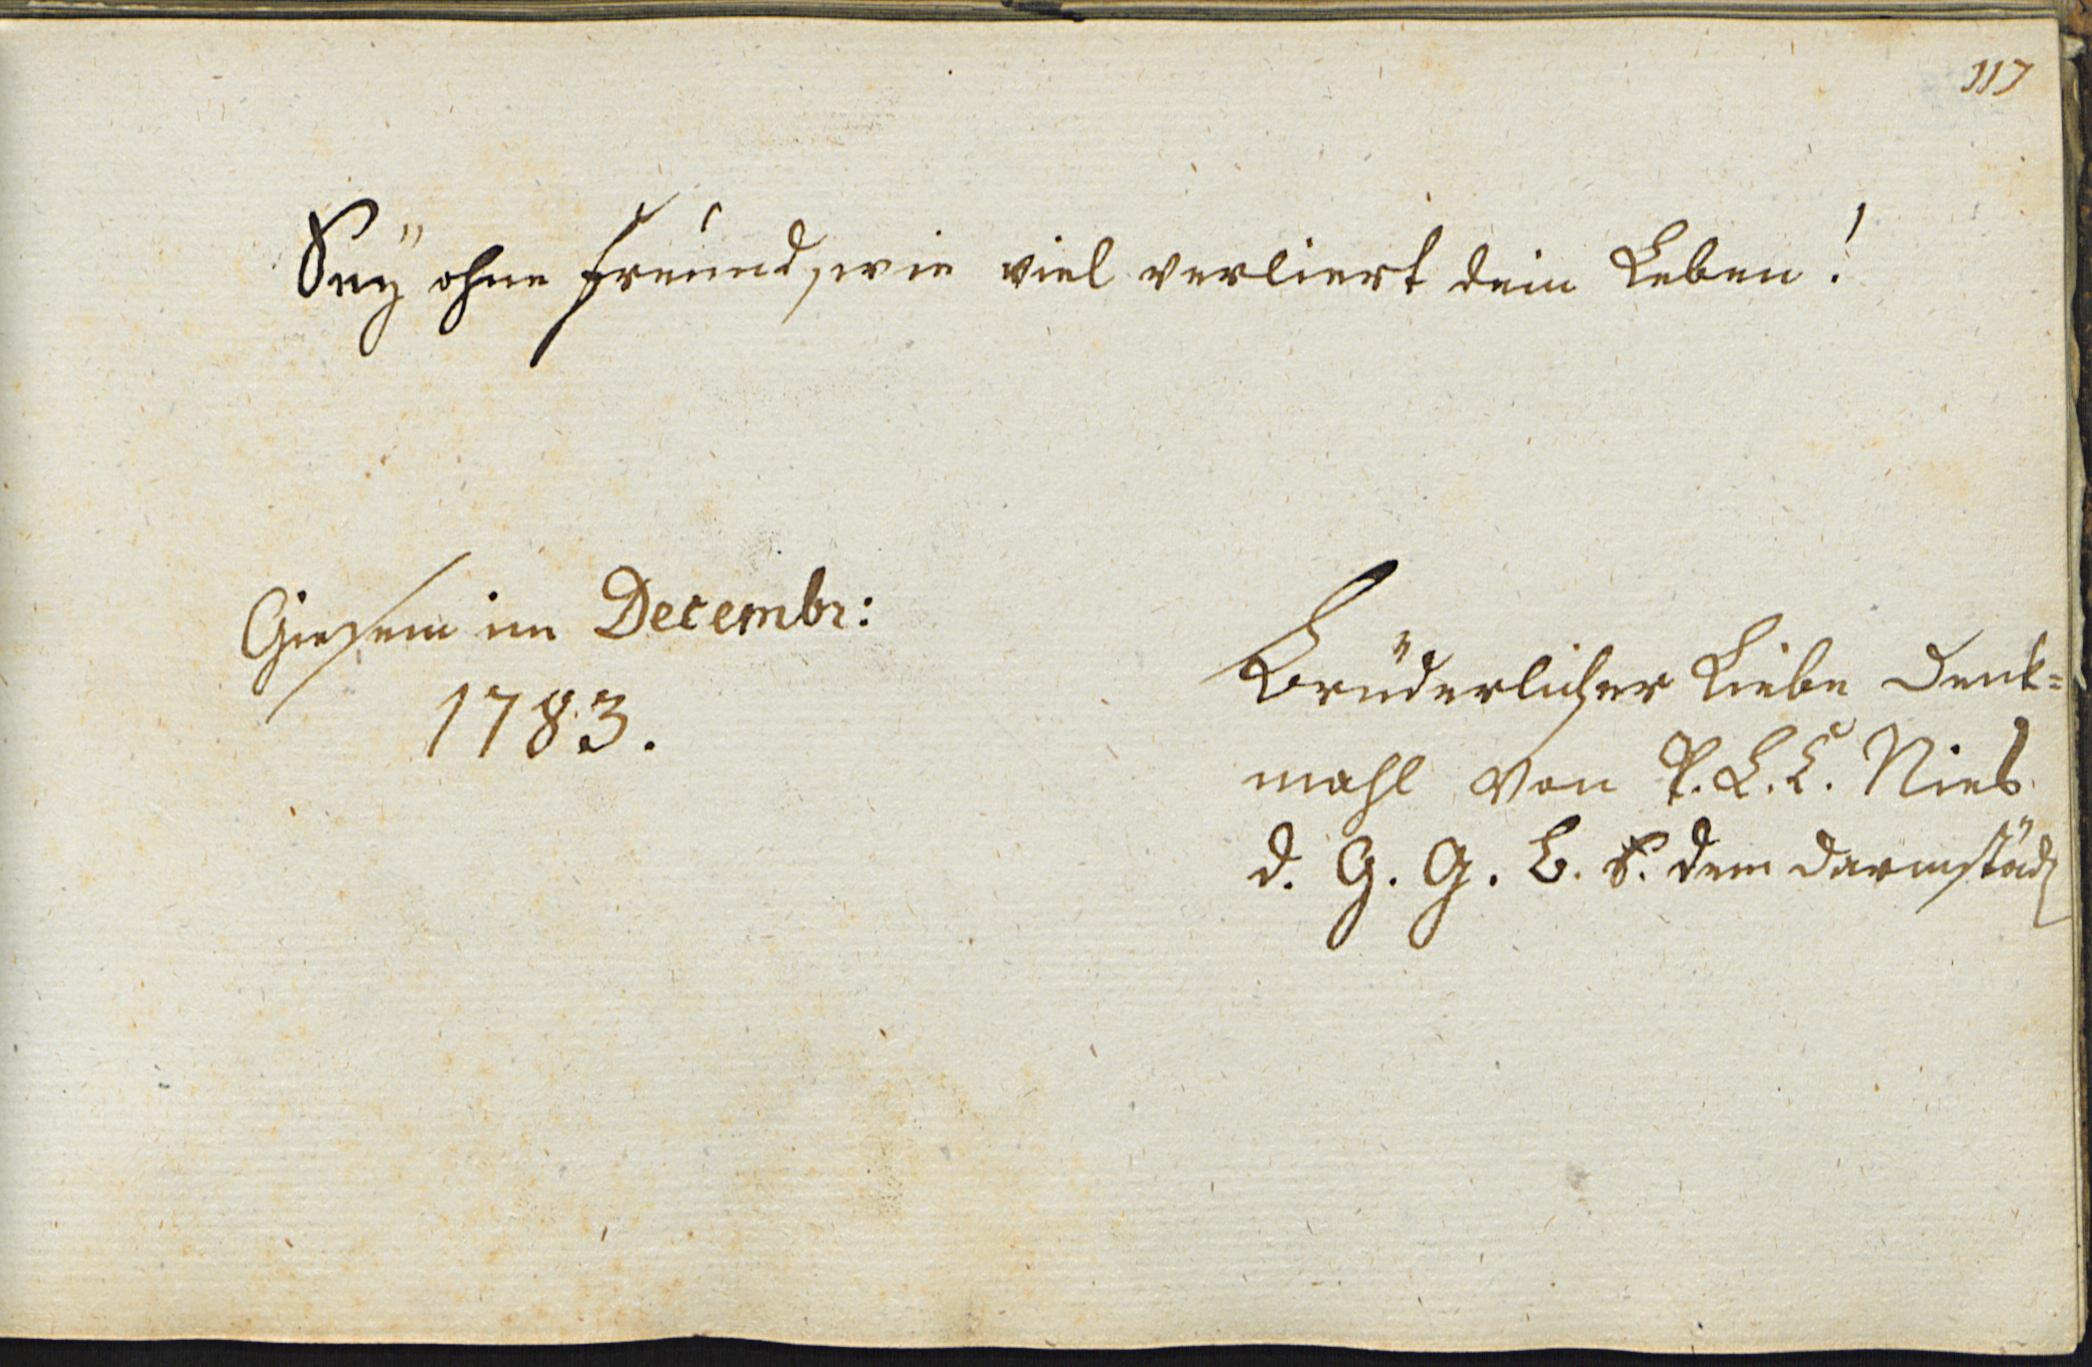 117
Seÿ ohne Freund, wie viel verliert dein Leben!
Giesen im Decembr:
1783.
Brüderlicher Liebe Denk=
mahl von P. L. C. Nies
d. G. G. B. S. dem Darmstädt